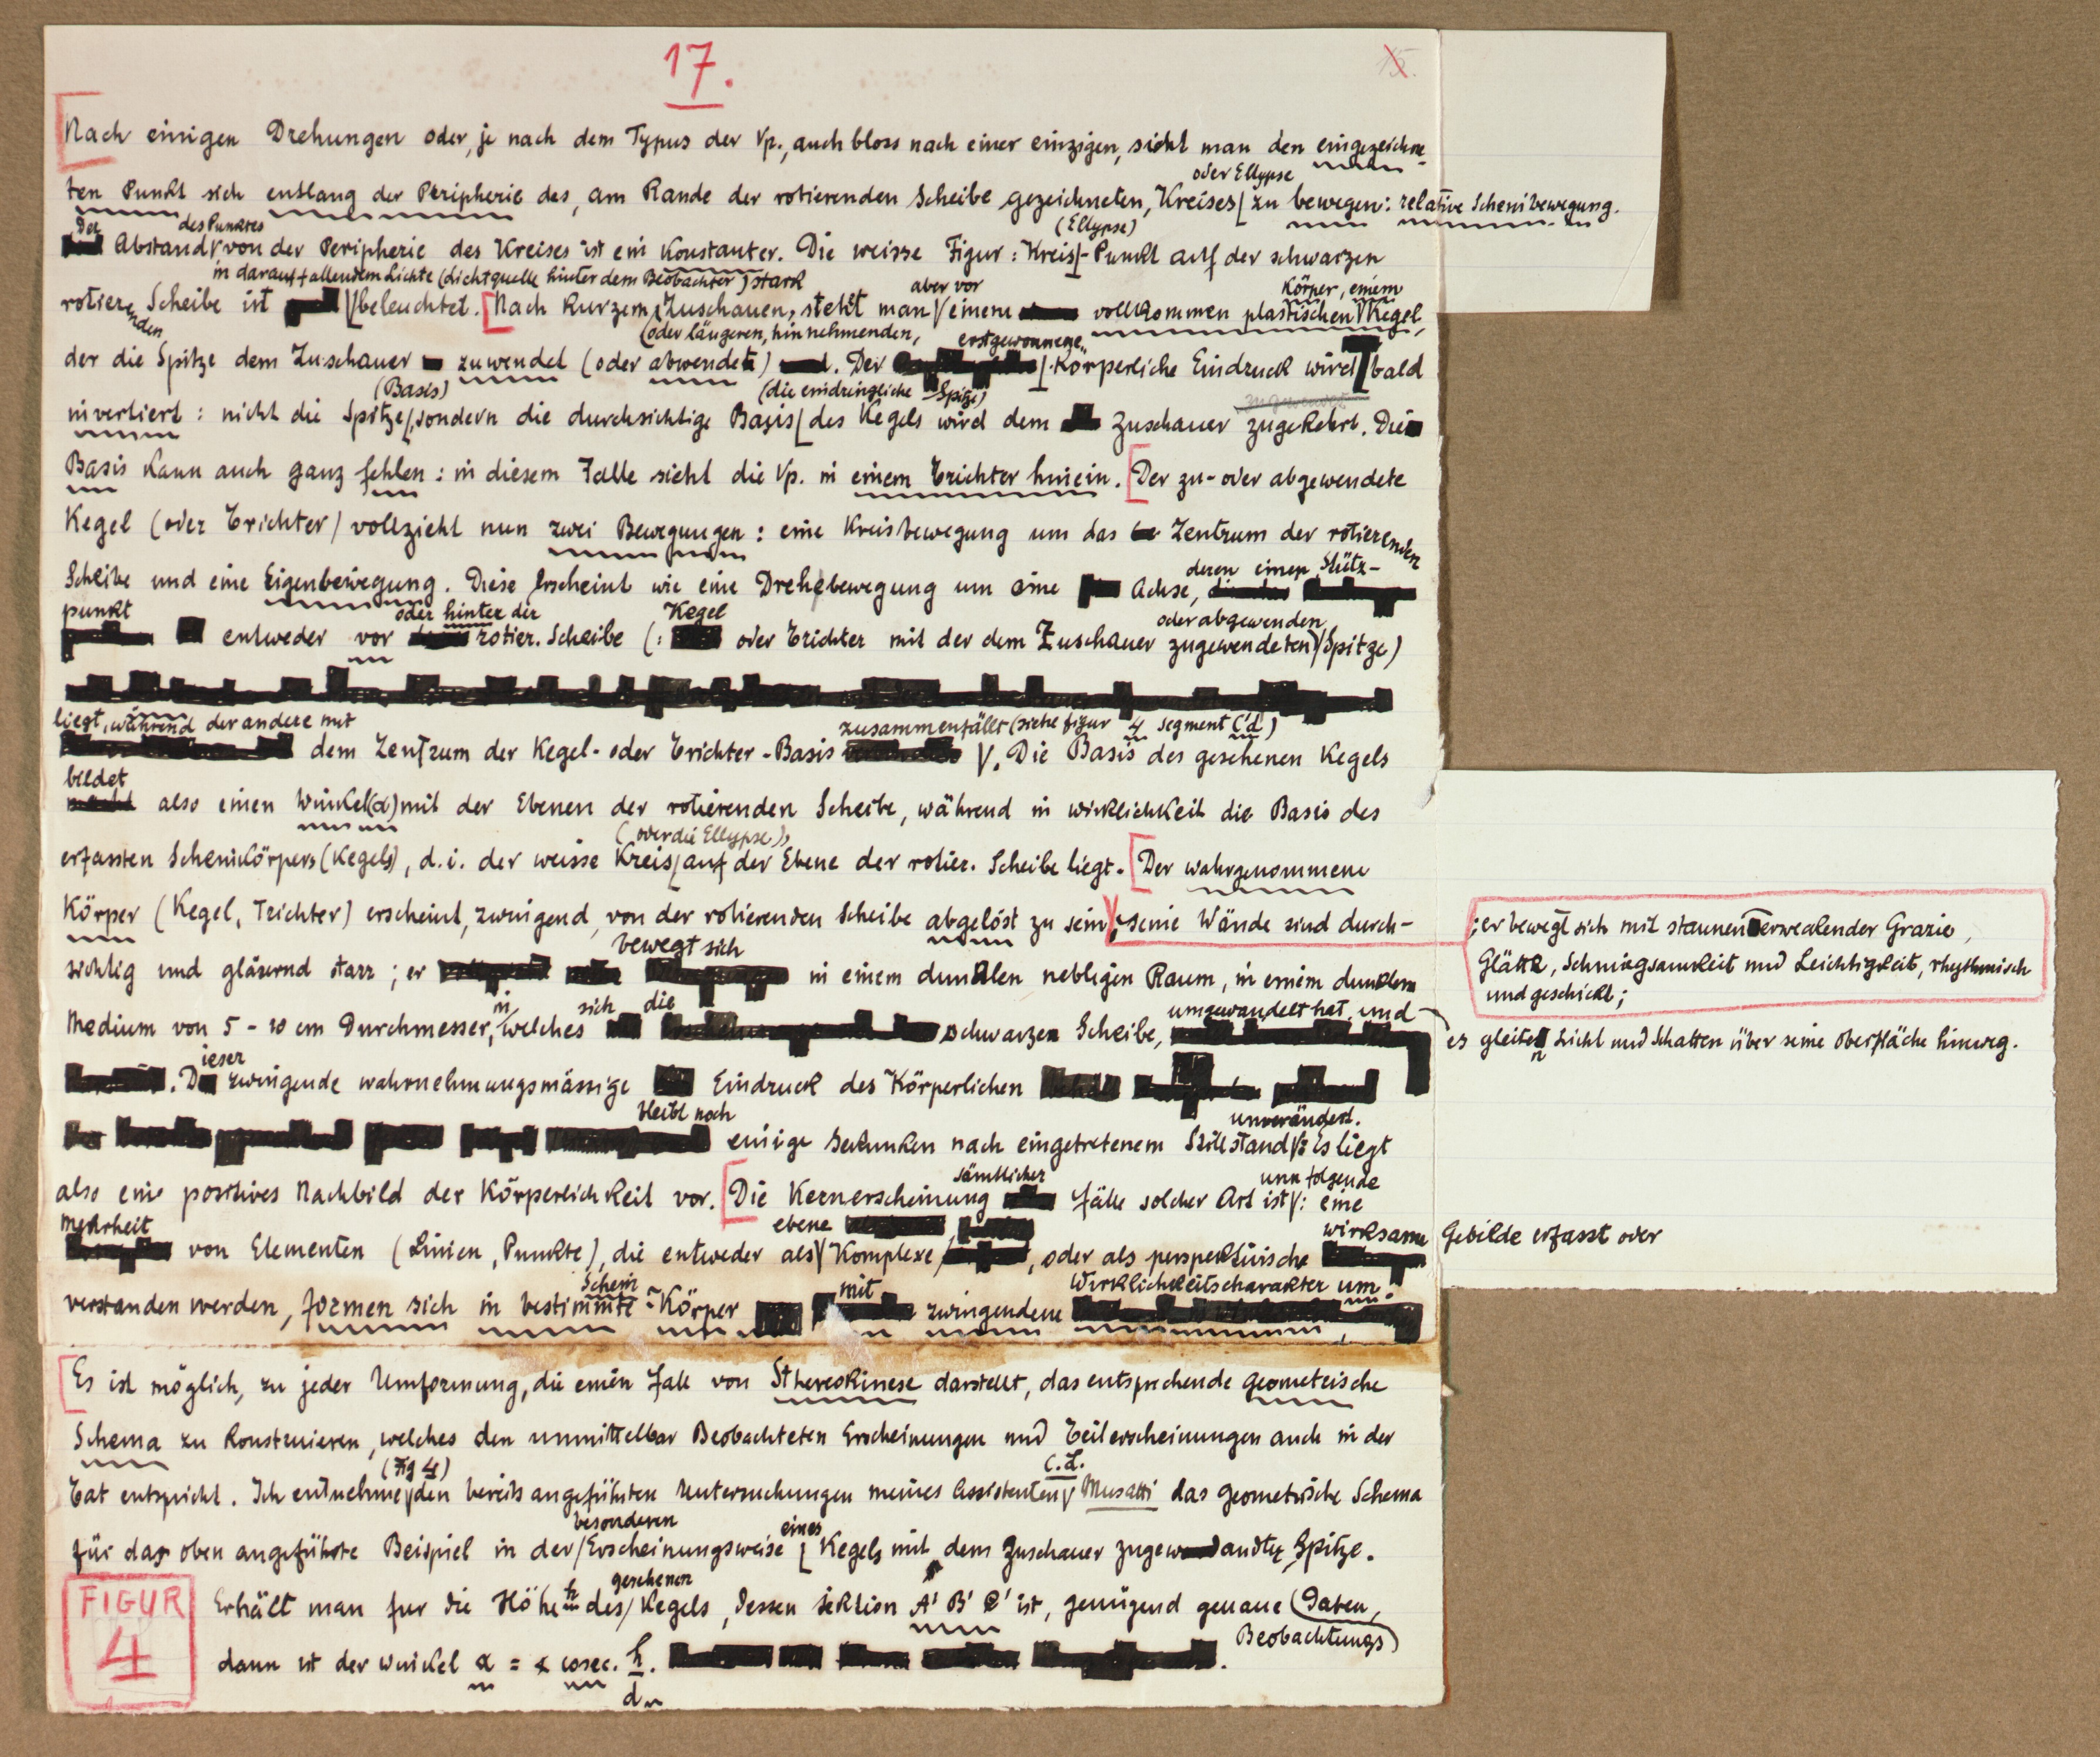 17.
Nach einigen Drehungen oder, je nach dem Typus der Vp., auch bloss nach einer einzigen, sieht man den eingezeichne-
oder Ellypse
ten Punkt sich entlang der Peripherie des, am Rande der rotierenden Scheibe gezeichneten, Kreises zu bewegen: relative Scheinbewegung.
Der des Punktes (Ellypse)
Abstand von der Peripherie des Kreises ist ein Konstanter. Die weisse Figur: Kreis-Punkt auf der schwarzen
in darauffallendem Lichte (Lichtquelle hinter dem Beobachter) stark aber vor Körper, einem
rotierenden Scheibe ist beleuchtet. Nach kurzem Zuschauen, steht man einem vollkommen plastischen Kegel,
(oder längeren, hinnehmenden, erstgewonnene
der die Spitze dem Zuschauer zuwendet (oder abwendet). Der Körperliche Eindruck wird bald
(Basis) (die eindringliche Spitze)
invertiert: nicht die Spitze, sondern die durchsichtige Basis des Kegels wird dem Zuschauer zugekehrt. Die
Basis kann auch ganz fehlen: in diesem Falle sieht die Vp. in einem Trichter hinein. Der zu- oder abgewendete
Kegel (oder Trichter) vollzieht nun zwei Bewegungen: eine Kreisbewegung um das Zentrum der rotierenden
deren einen Stütz-
Scheibe und eine Eigenbewegung. Diese erscheint wie eine Drehbewegung um eine Achse,
punkt oder hinter der Kegel oder abgewenden
entweder vor rotier. Scheibe (: oder Trichter mit der dem Zuschauer zugewendeten Spitze)
liegt, während der andere mit zusammenfällt (siehe figur 4 segment c'd')
dem Zentrum der Kegel- oder Trichter-Basis. Die Basis des gesehenen Kegels
bildet
also einen Winkel (α) mit der Ebenen der rotierenden Scheibe, während in Wirklichkeit die Basis des
(oder die Ellypse),
erfassten Scheinkörpers (Kegels), d.i. der weisse Kreis auf der Ebene der rotier. Scheibe liegt. Der wahrgenommene
Körper (Kegel, Trichter) erscheint, zwingend, von der rotierenden Scheibe abgelöst zu sein; seine Wände sind durch-
; er bewegt sich mit staunenerweckender Grazie,
Glätte, Schmiegsamkeit und Leichtigkeit, rhythmisch
und geschickt;
bewegt sich
sichtig und gläsernd starr; er in einem dunklen nebligen Raum, in einem dunklem
in sich die umgewandelt hat, und
Medium von 5-10 cm Durchmesser, welches schwarzen Scheibe, es gleiten Licht und Schatten über seine Oberfläche hinweg.
Dieser zwingende wahrnehmungsmässige Eindruck des Körperlichen
bleibt noch unverändert.
einige Sekunden nach eingetretenem Stillstand. Es liegt
sämtlicher nun folgende
also ein positives Nachbild der Körperlichkeit vor. Die Kernerscheinung fälle solcher Art ist: eine
Mehrheit ebene wirksame Gebilde erfasst oder
von Elementen (Linien, Punkte), die entweder als Komplexe, oder als perspektivische
Schein mit Wirklichkeitscharakter um.
verstanden werden, formen sich in bestimmte -Körper zwingendene
Es ist möglich, zu jeder Umformung, die einen Fall von Sthereokinese darstellt, das entsprechende geometrische
Schema zu konstruieren, welches den unmittelbar Beobachteten Erscheinungen und Teilerscheinungen auch in der
(Fig 4) C.L.
Tat entspricht. Ich entnehme den bereits angeführten Untersuchungen meines Assistenten Musatti das geometrische Schema
besonderen eines
für das oben angeführte Beispiel in der Erscheinungsweise Kegels mit dem Zuschauer zugewandter Spitze.
FIGUR
4
h gesehenen
Erhält man fur die Höhe des Kegels, dessen Sektion A' B' C' ist, genügend genaue Daten,
Beobachtungs
dann ist der Winkel α = cosec. h/d.